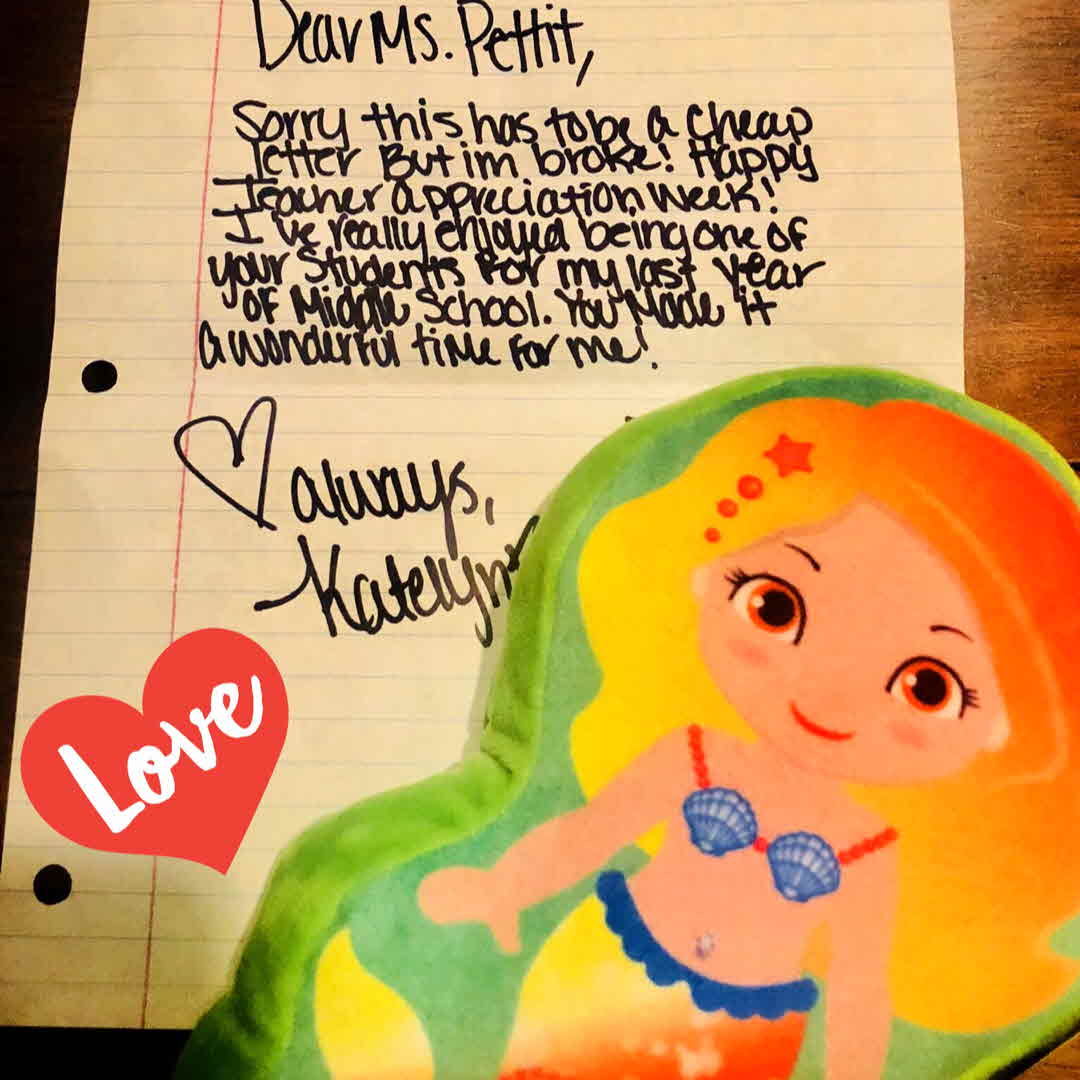 Dear Ms. Pettit,
Sorry this has to be a cheap
letter But im broke! Happy
Teacher appreciation week!
I've really enjoyed being one of
your Students for my last year
of Middle School. You Made it
a wonderful time for me!
always,
-Katelyn
Love